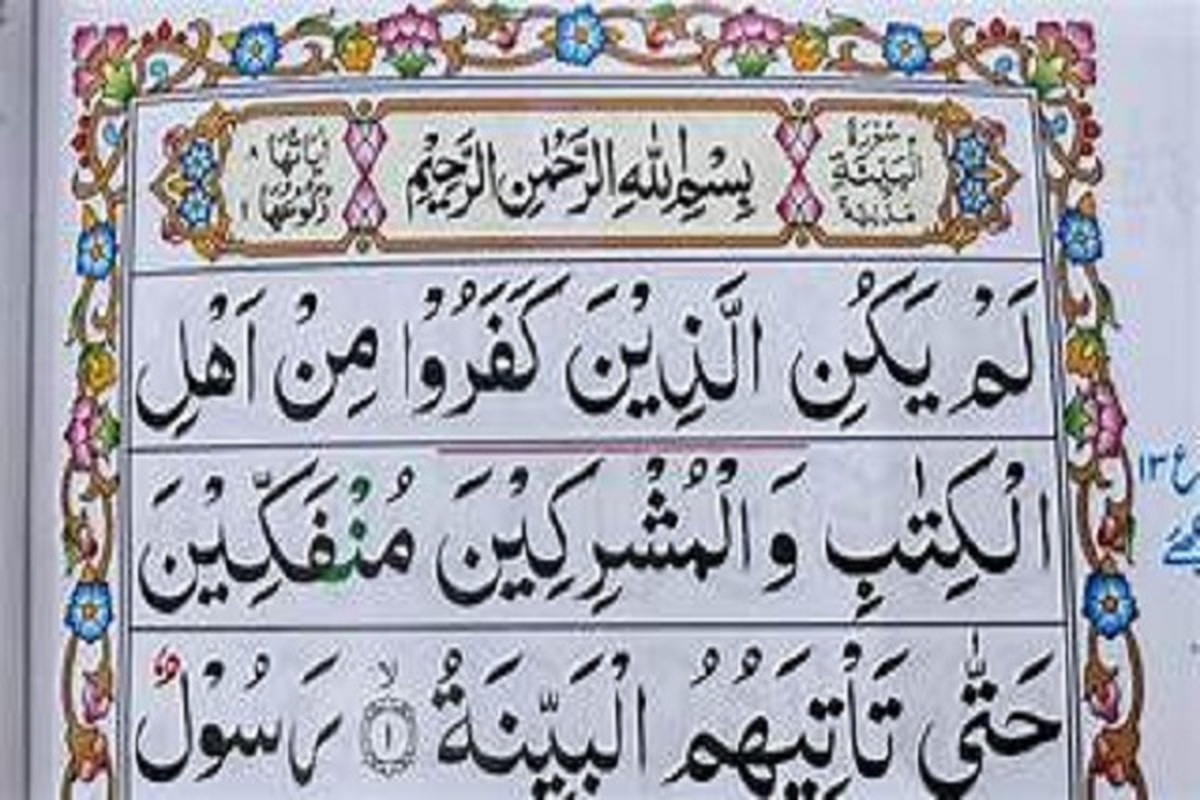 سُوْرَةُ الْبَيِّنَةِ مَدَنِيَّةٌ
بِسْمِ اللهِ الرَّحْمٰنِ الرَّحِيْمِ
اٰيَاتُهَا ٨
رُكُوْعُهَا ١
لَمْ يَكُنِ الَّذِيْنَ كَفَرُوْا مِنْ اَهْلِ
الْكِتٰبِ وَالْمُشْرِكِيْنَ مُنْفَكِّيْنَ
حَتّٰى تَاْتِيَهُمُ الْبَيِّنَةُ ۙ ١ رَسُوْلٌ
ع ١٣